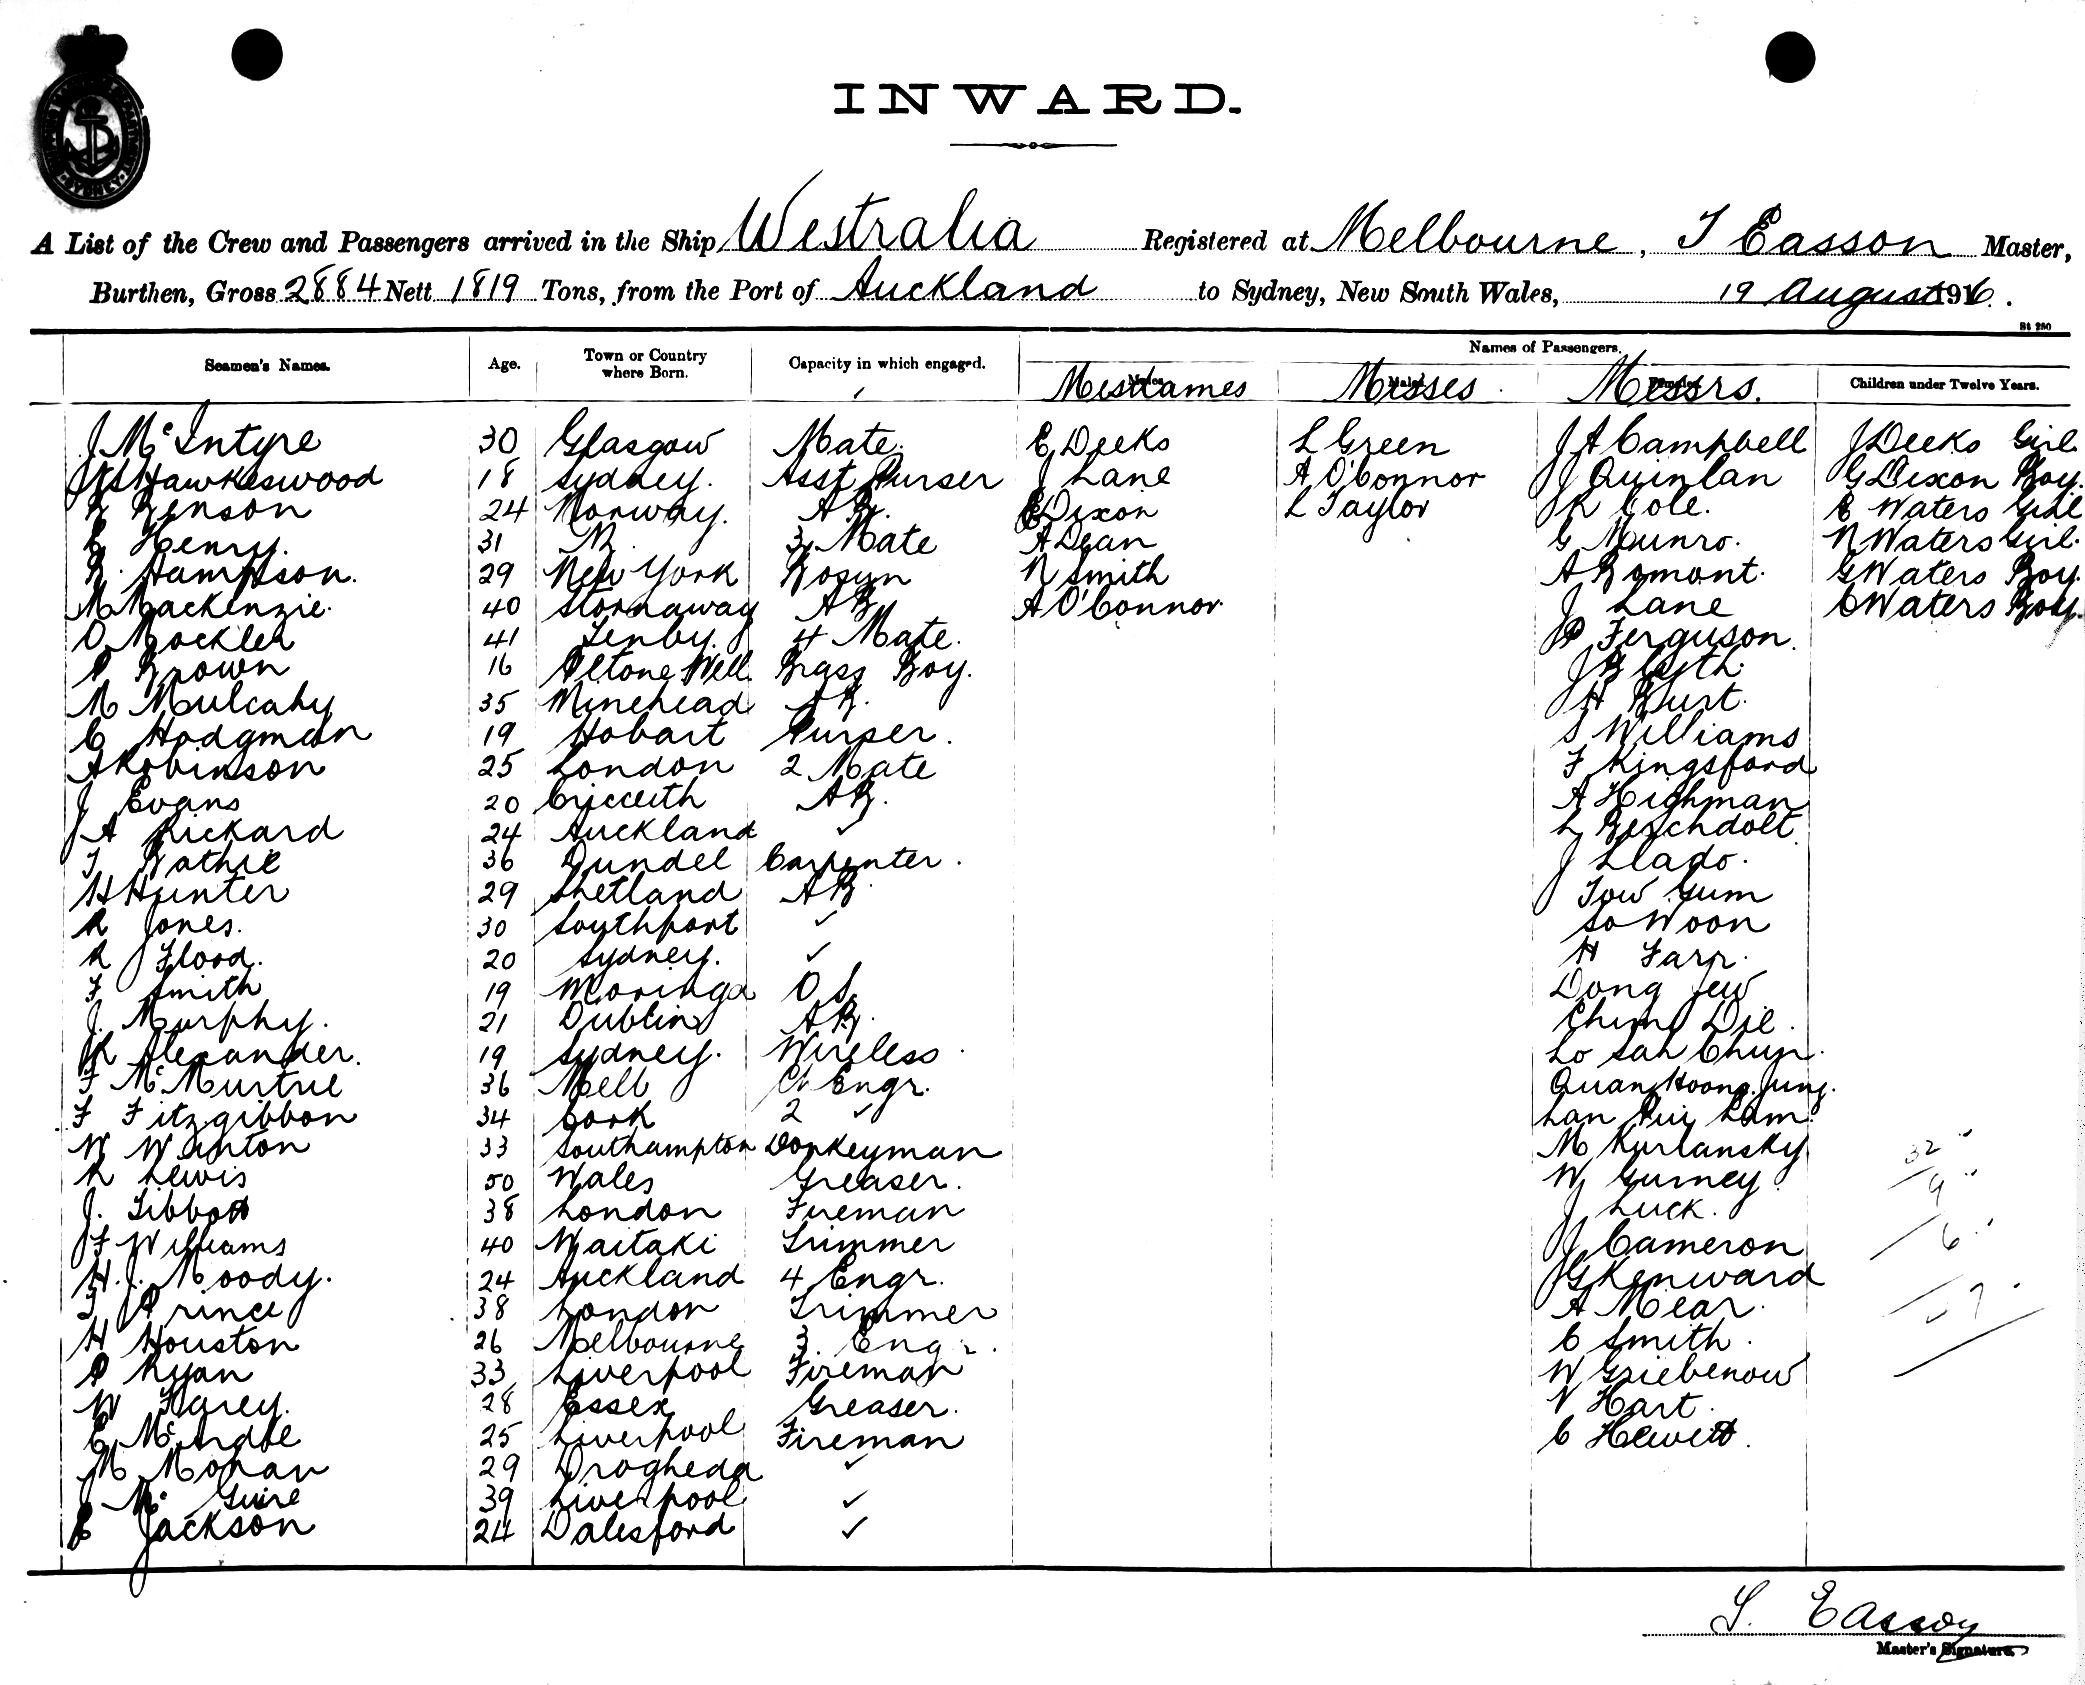 INWARD.
A List of the Crew and Passengers arrived in the Ship Westralia Registered at Melbourne, T Easson Master,
Burthen, Gross 2884 Nett 1819 Tons, from the Port of Auckland to Sydney, New South Wales, 19 August 1916.
St 280
Seamen's Names. Age. Town or Country where Born. Capacity in which engaged. Names of Passengers.
Mesdames Misses Messrs. Children under Twelve Years.
J McIntyre 30 Glasgow Mate. E Deeks L Green J A Campbell J Deeks Girl
Hawkeswood 18 Sydney. Asst Purser J Lane A O'Connor J Quinlan G Dixon Boy.
R Benson 24 Norway. AB. E Dixon L Taylor L Cole. E Waters Girl
E Henry. 31 3 Mate A Dean G Munro. N Waters Girl.
R. Hampson. 29 New York Bosun N Smith A Bomont. G Waters Boy.
M Mackenzie. 40 Stornaway AB A O'Connor J Lane C Waters Boy.
O Mockler 41 Tenby. 4 Mate. P Ferguson.
P Brown 16 Brass Boy. J Blyth.
M Mulcahy 35 Minehead AB. H Burt.
C Hodgman 19 Hobart Purser. S Williams
A Robinson 25 London 2 Mate F Kingsford
J Evans 20 Criccieth AB. A Highman
J A Rickard 24 Auckland ✓ L Beschdolt
T Bathie 36 Dundee Carpenter. J Llado.
H Hunter 29 Shetland AB. Tow Gum
R Jones. 30 Southport ✓ So Woon
R Flood. 20 Sydney. ✓ H Farr.
F Smith 19 Moringa O S Dong Jew
J. Murphy. 21 Dublin AB. Chung Die.
R Alexander. 19 Sydney. Wireless Lo Sah Chun.
F McMurtrie 36 Melb Ch Engr. Quan Hoong Jung.
F Fitzgibbon 34 Cork 2 ✓ Lan Pui Lam.
W Wanton 33 Southampton Donkeyman M Kurlansky
R Lewis 50 Wales Greaser. W Gurney
J. Tibbott 38 London Fireman J Luck.
J F Williams 40 Waitaki Trimmer J Cameron
H. J. Moody. 24 Auckland 4 Engr. G Kenward
T Prince 38 London Trimmer A Mear.
H Houston 26 Melbourne 3. Engr. C Smith.
P Ryan 33 Liverpool Fireman W Griebenow
W Harey. 28 Essex Greaser. V Hart.
E McArdle 25 Liverpool Fireman C Hewett.
M Moran 29 Drogheda ✓
J McGuire 39 Liverpool ✓
E Jackson 24 Dalesford ✓
32
9
6
T. Easson
Master's Signature.